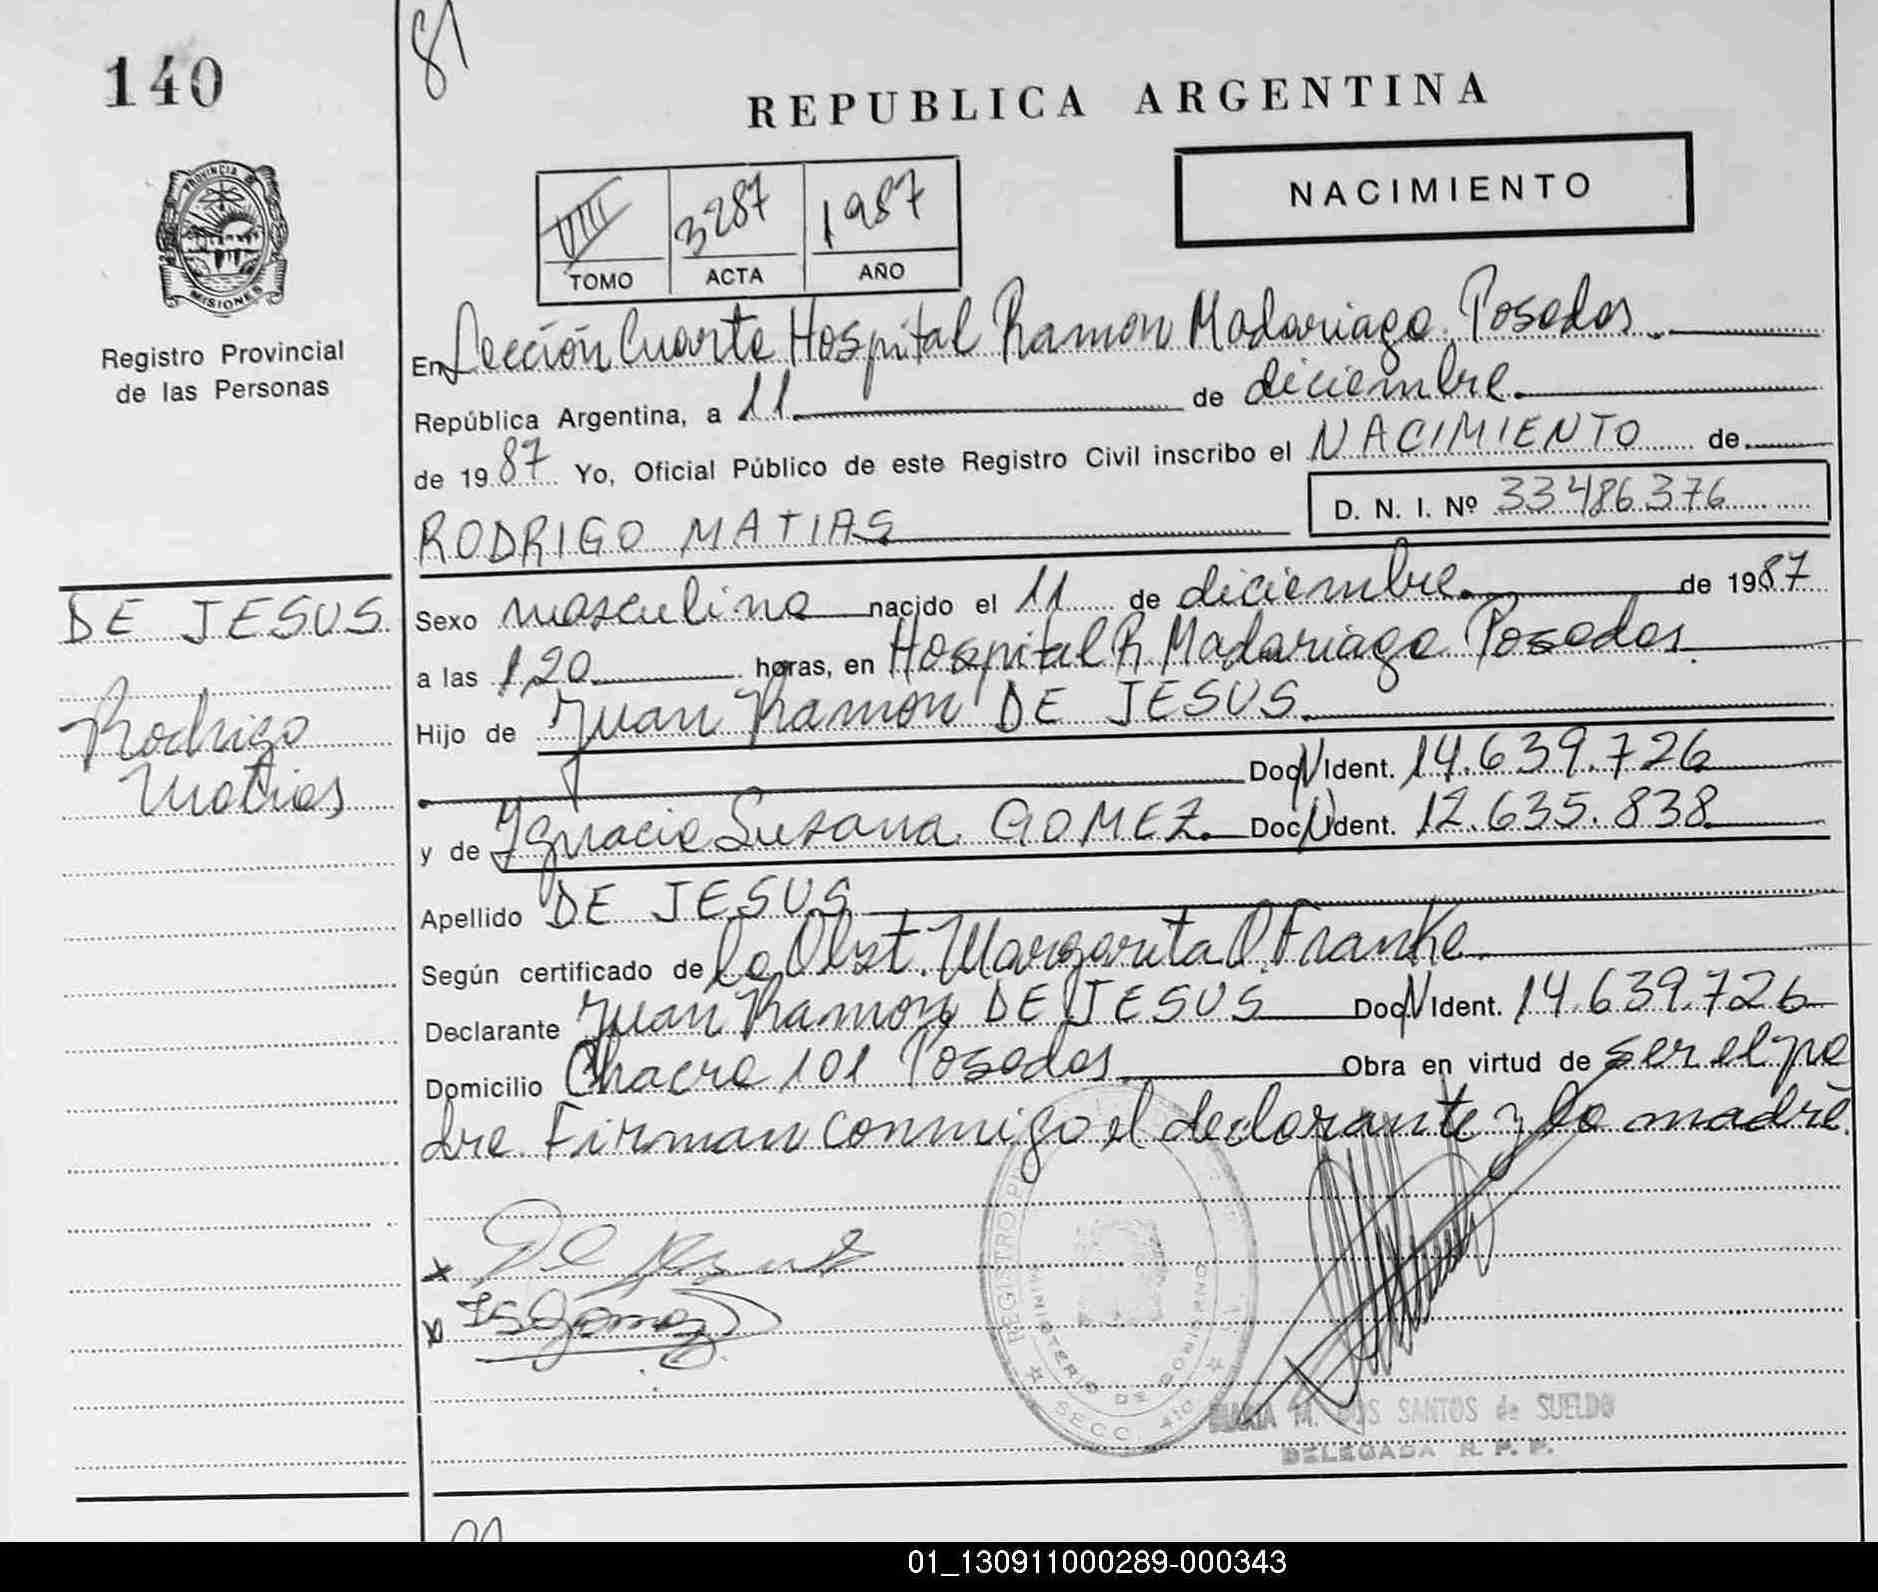 81
140
REPUBLICA ARGENTINA
NACIMIENTO
VIII 3287 1987
TOMO ACTA AÑO
PROVINCIA DE
MISIONES
Registro Provincial
de las Personas
En Sección Cuarta Hospital Ramon Madariaga. Posadas
República Argentina, a 11 de diciembre
de 1987 Yo, Oficial Público de este Registro Civil inscribo el NACIMIENTO de
D. N. I. Nº 33486376
RODRIGO MATIAS
DE JESUS
Rodrigo
Matias
Sexo masculino nacido el 11 de diciembre de 1987
a las 1,20 horas, en Hospital R. Madariaga Posadas.
Hijo de Juan Ramon DE JESUS
Doc. N Ident. 14.639.726
y de Ygnacia Susana GOMEZ Doc. N Ident. 12.635.838
Apellido DE JESUS
Según certificado de la Obst. Margarita O. Franke
Declarante Juan Ramon DE JESUS Doc. N Ident. 14.639.726
Domicilio Chacra 101 Posadas Obra en virtud de ser el pa
dre. Firman conmigo el declarante y la madre.
x De Jesus
x IS Gomez
REGISTRO
MINISTERIO DE GOBIERNO
SECC. 4TO
MARIA M. DOS SANTOS de SUELDO
DELEGADA R. P. P.
01_130911000289-000343